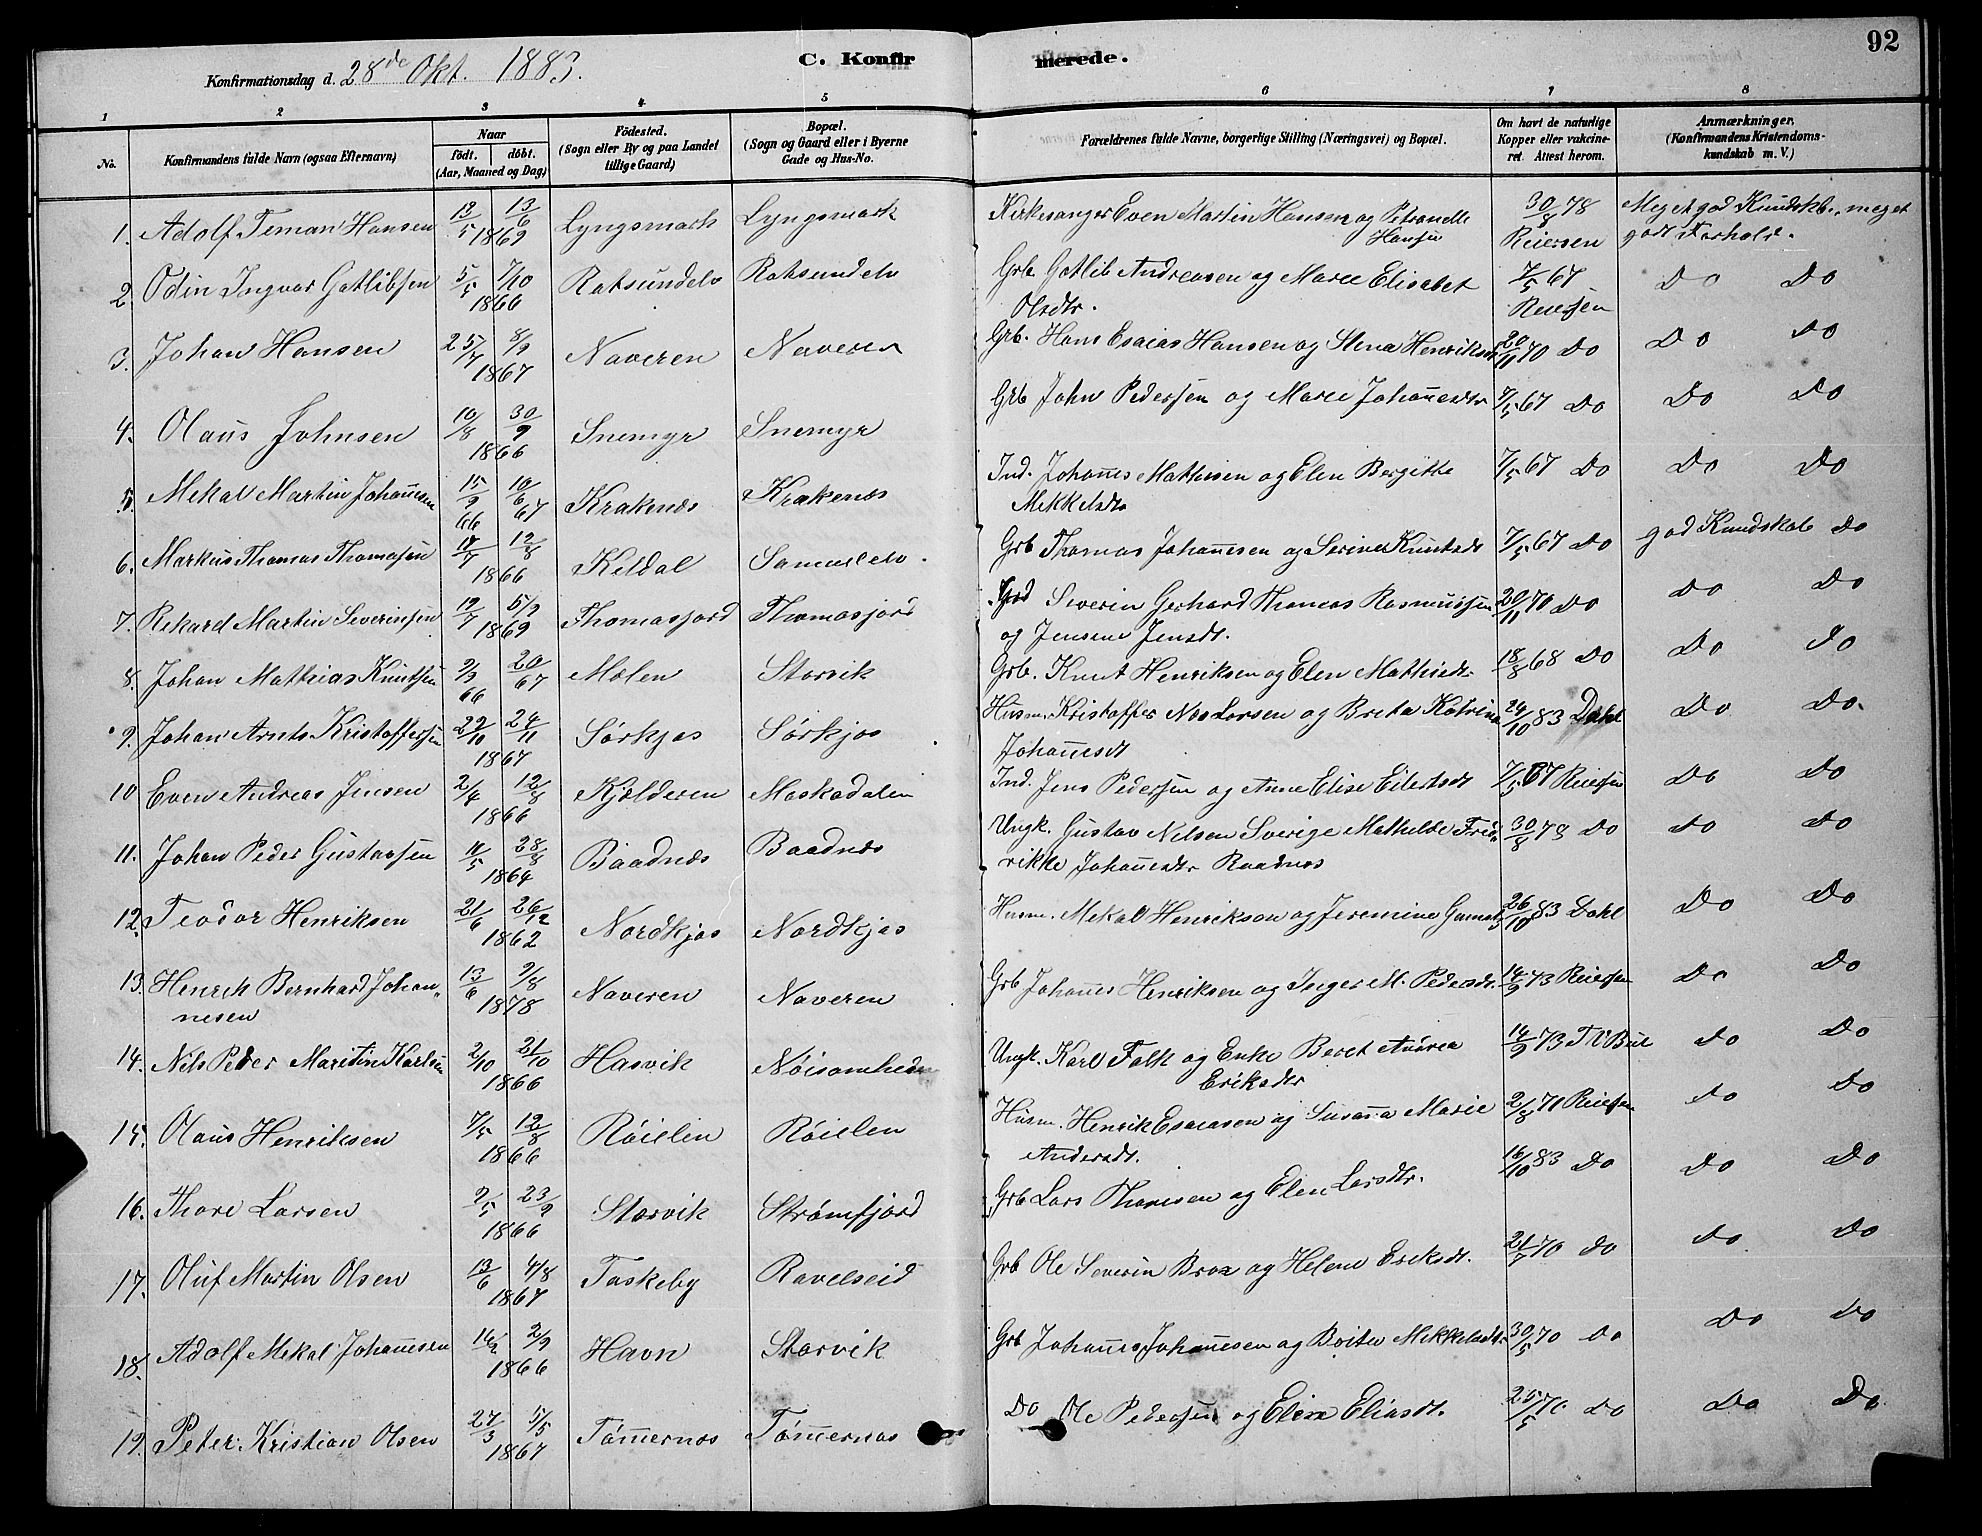 92
Konfirmationsdag d. 28de Okt. 1883.
C. Konfirmerede.
1 2 3 4 5 6 7 8
No.
Konfirmandens fulde Navn (ogsaa Efternavn)
Naar
født. døbt.
(Aar, Maaned og Dag)
Fødested.
(Sogn eller By og paa Landet
tillige Gaard)
Bopæl.
(Sogn og Gaard eller i Byerne
Gade og Hus-No.
Forældrenes fulde Navne, borgerlige Stilling (Næringsvei) og Bopæl.
Om havt de naturlige
Kopper eller vakcine-
ret. Attest herom.
Anmærkninger.
(Konfirmandens Kristendoms-
kundskab m. V.)
1. Adolf Teman Hansen 13/5 13/6 1869 Lyngsmark Lyngsmark Kirkesanger Even Martin Hansen og Petranelle Hansen 30/8 78 Reiersen Meget god Kundskb., meget godt Forhold.
2. Odin Ingvar Gotlibsen 5/5 7/10 1866 Rotsundelv Rotsundelv Grb. Gotlib Andreasen og Maree Elisabet Olsdtr. 7/5 67 Reiersen Do Do
3. Johan Hansen 25/7 8/9 1867 Naveren Naveren Grb. Hans Esaias Hansen og Stena Henriksdtr 20/11 70 Do Do Do
4. Olaus Johnsen 10/8 30/9 1866 Snemyr Snemyr Grb John Pedersen og Maree Johannesdtr 7/5 67 Do Do Do
5. Mekal Martin Johannesen 15/9 66 10/6 67 Krakenes Krakenes Ind. Johannes Mathisen og Elen Bergitte Mekkelsdtr 7/5 67 Do Do Do
6. Markus Thomas Thomasen 12/8 1866 Keldal Samuelelv. Grb Thomas Johannesen og Serine Knutsdt 7/5 67 Do god Kundskab Do
7. Rekard Martin Severinsen 19/7 5/9 1869 Thomasjord Thomasjord Severin Gerhard Thomas Rasmussen og Jensine Jensdt. 20/11 70 Do Do Do
8. Johan Mathias Knutsen 9/3 66 67 Molen Storvik Grb. Knut Henriksen og Elen Mathisdtr 18/8 68 Do Do Do
9. Johan Arnts Kristoffersen 22/10 24/11 1867 Sørkjos Sørkjos Husm. Kristoffer Nos Larsen og Breta Katrine Johannesdt 24/10 83 Dahl Do Do.
10 Even Andreas Jensen 2/4 12/8 1866 Kjelderen Maskodalen Ind. Jens Pedersen og Anne Elise Eilertsdt 7/5 67 Reiersen Do Do
11. Johan Peder Gustavsen 11/5 28/8 1864 Baadnes Baadnes Ungk. Gustav Nilsen Sverige Mathilde Fredrikke Johannesdtr Baadnes 30/8 78 Do Do Do
12. Teodor Henriksen 21/6 26/12 1862 Nordkjos Nordkjos Husm. Mekal Henriksen og Jeremine 26/10 83 Dahl Do Do
13. Henrik Bernhard Johannesen 13/6 9/8 1878 Naveren Naveren Grb Johannes Henriksen og Inger M. Pedersdt. 14/9 73 Reiersen Do Do
14. Nils Peder Maritin Karlsen 2/10 21/10 1866 Hasvik Nøisomheden Ungk. Karl Falk og Enke Beret Andrea Eriksdtr 14/9 73 Do Do
15. Olaus Henriksen 7/5 12/8 1866 Røielen Røielen Husm. Henrik Esaiasen og Susanna Marie Andersdt. 2/8 70 Reiersen Do Do
16. Thore Larsen 9/5 23/9 1866 Storvik Strømfjord Grb Lars Thoresen og Elen Larsdtr. 16/10 83 Do Do Do
17. Oluf Martin Olsen 13/6 4/8 1867 Taskeby Ravelseid Grb Ole Severin Brox og Helene Eriksdt. 21/7 70 Do Do Do
18. Adolf Mekal Johannesen 2/9 1866 Havn Storvik Grb Johannes Johannesen og Brita Mekkelsdtr 30/5 70 Do Do Do
19. Peter Kristian Olsen 27/3 5/5 1867 Tømmernes Tømmernes Do Ole Pedersen og Elen Eliasdt. 25/5 70 Do Do Do